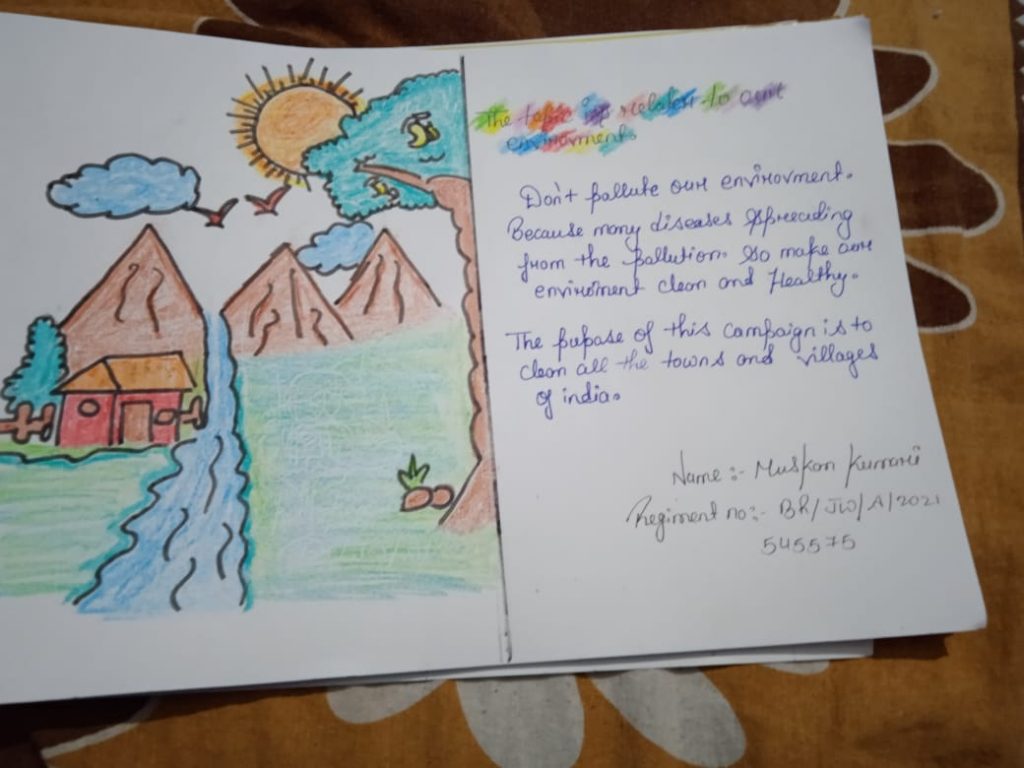 The topic is related to our
envirovment.
Don't pollute our envirovment.
Because many diseases spreeding
from the pollution. So make our
enviroiment clean and Healthy.
The pupose of this campaign is to
clean all the towns and villages
of india.
Name :- Muskan Kumari
Regiment no:- BR/JW/A/2021
545575